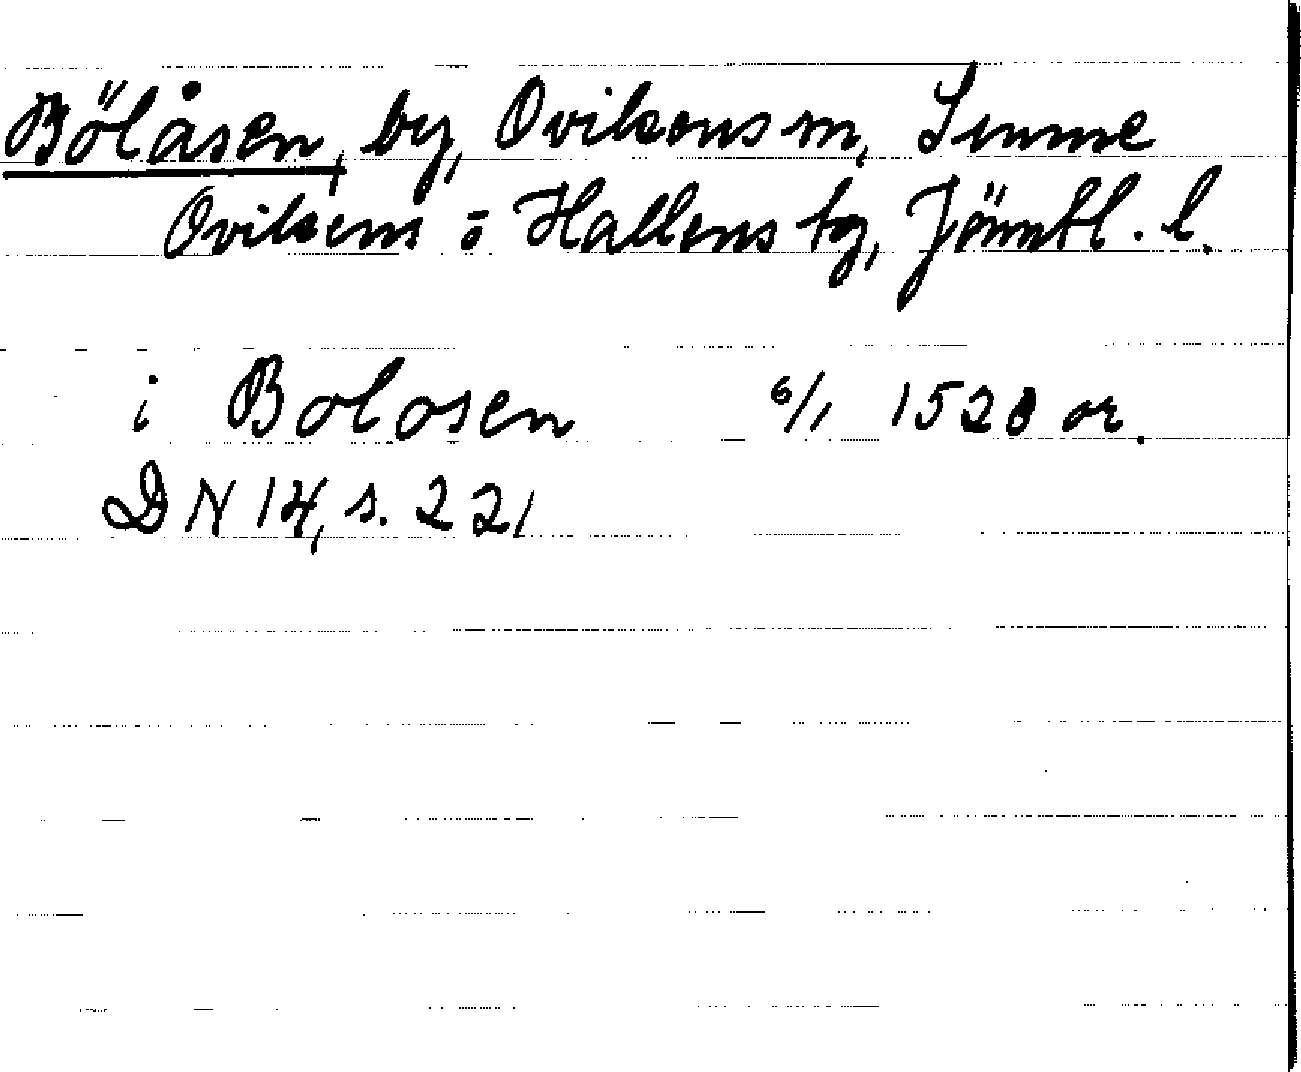 Bölåsen, by, Ovikens sn, Sunne
Ovikens o Hallens tg, Jämtl. l.
i Bolosen 6/1 1520 or.
DN 14, s. 221